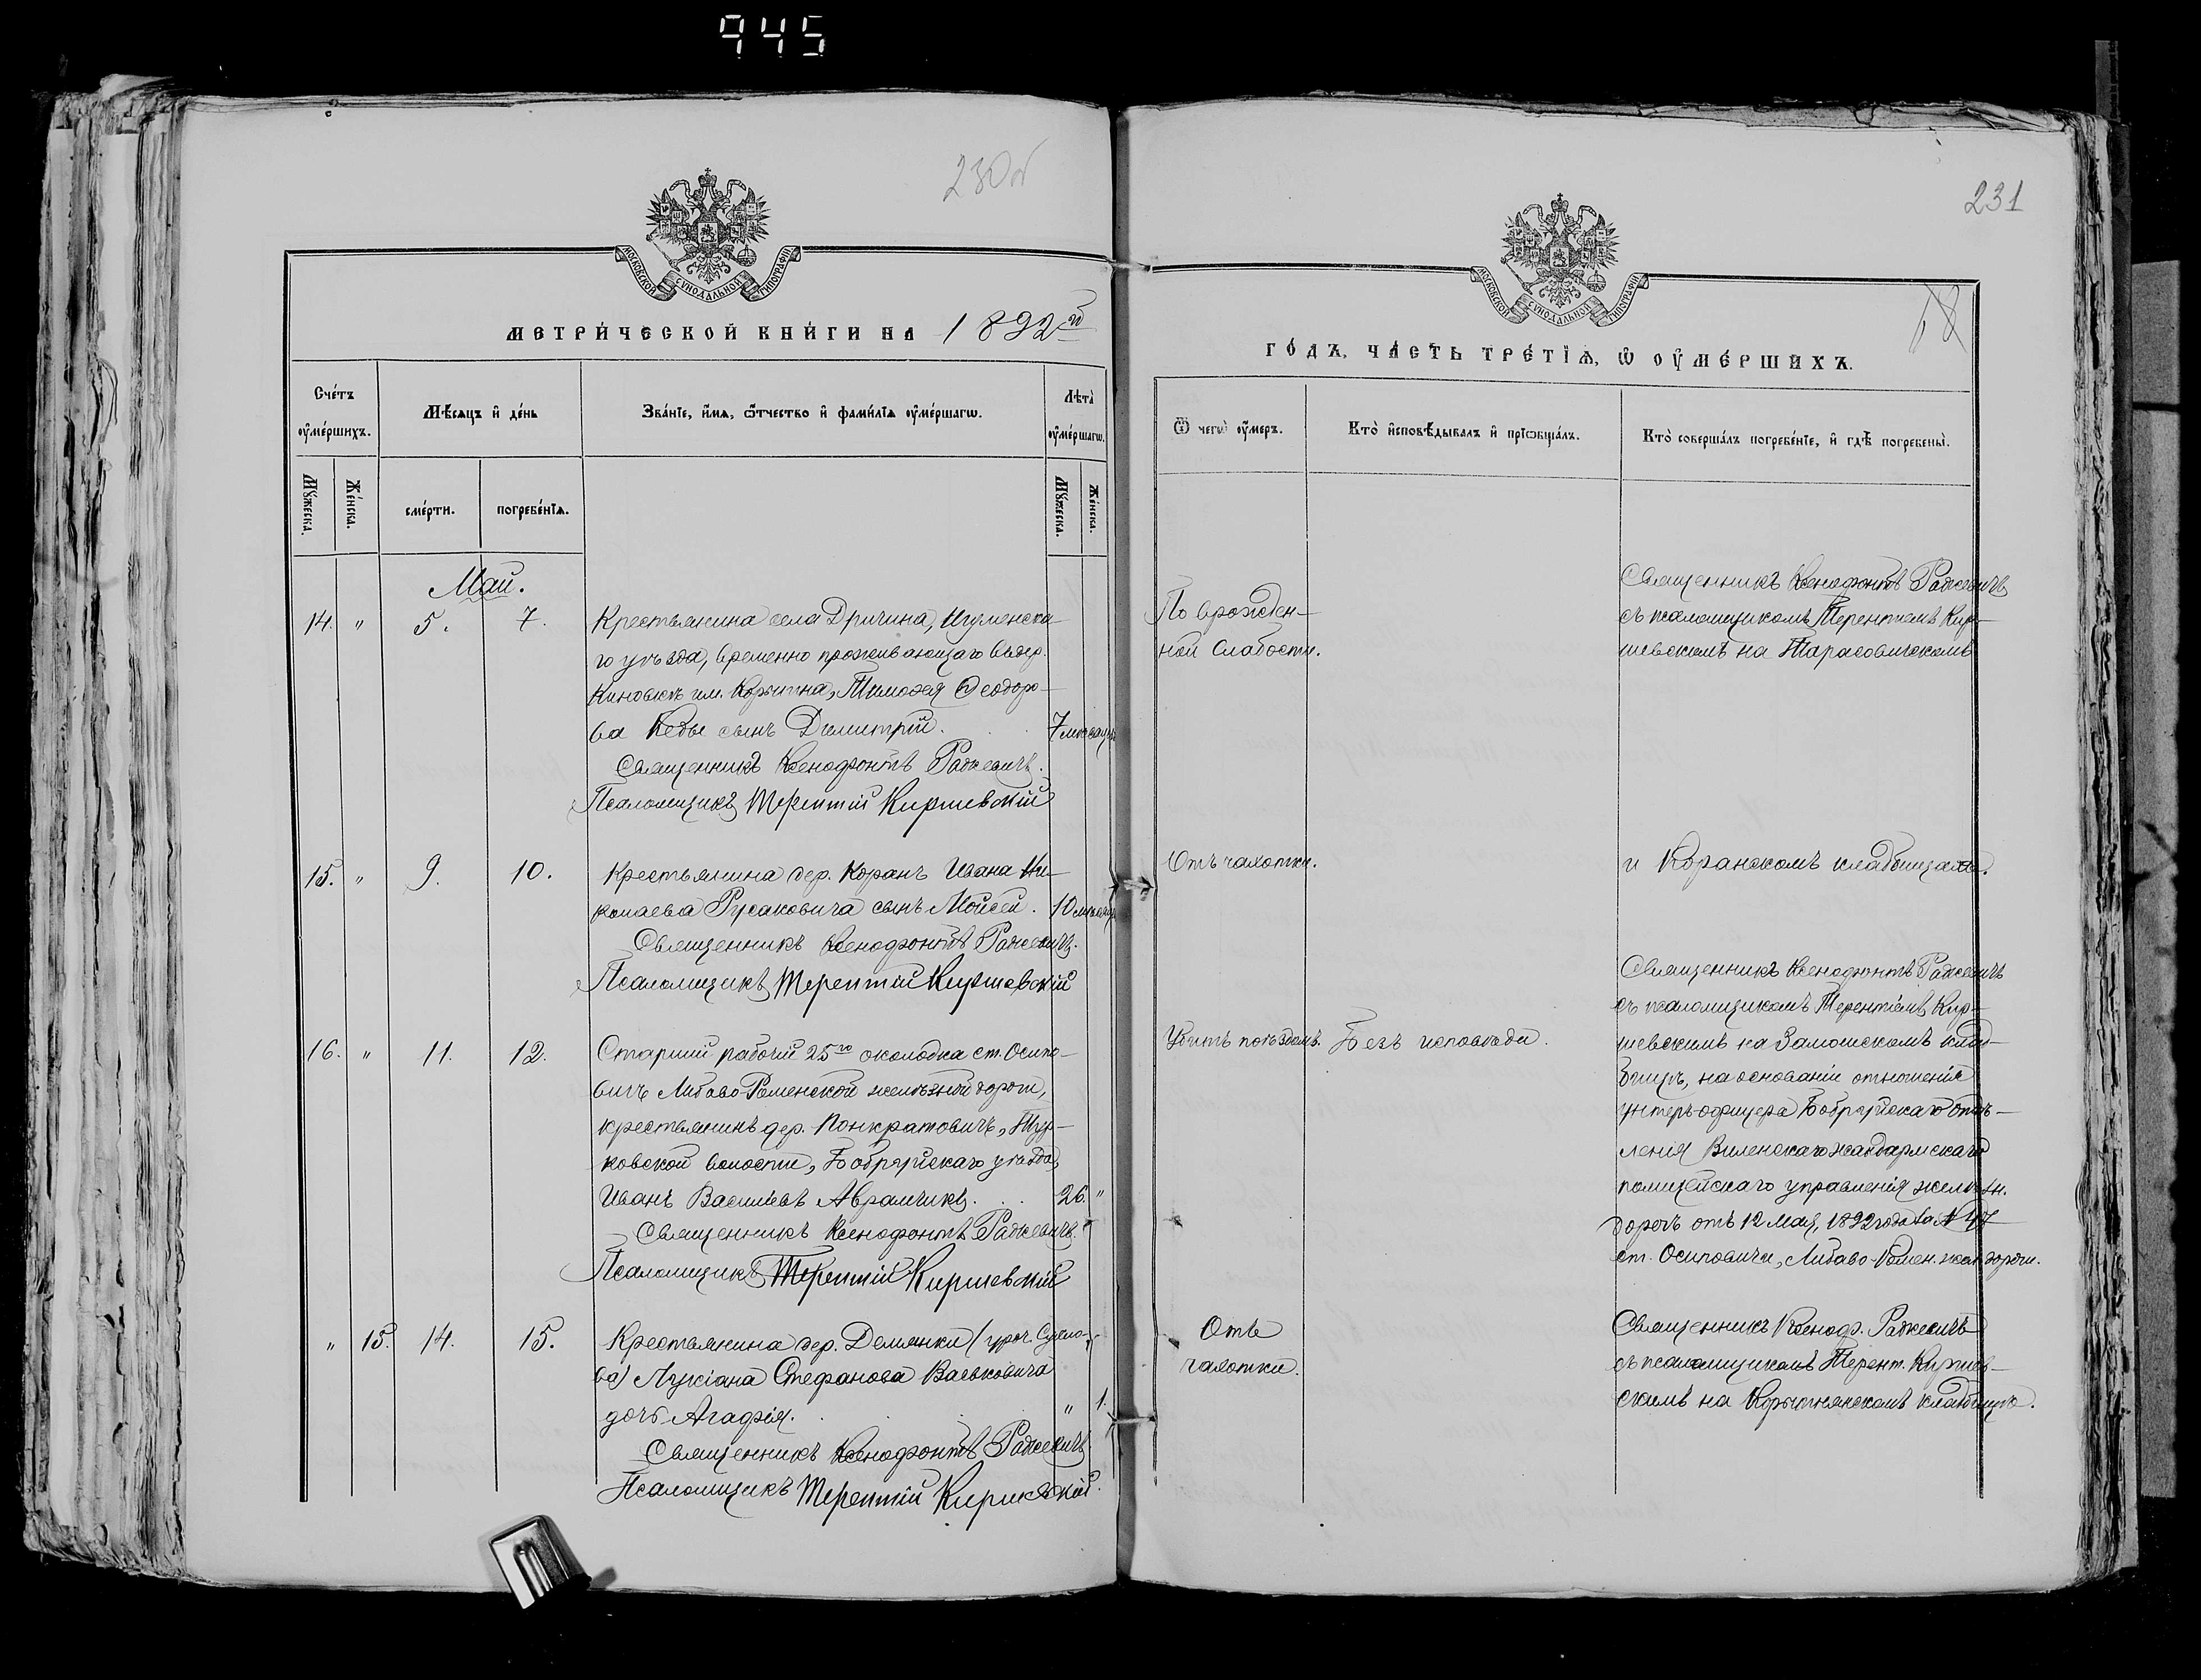 945
230об
231
МОСКОВСКОЙ СѴНОДАЛЬНОЙ ТИПОГРАФІИ
МОСКОВСКОЙ СѴНОДАЛЬНОЙ ТИПОГРАФІИ
МЕТРИ́ЧЕСКОЙ КНИ́ГИ НА 1892й
ГО́ДЪ, ЧА́СТЬ ТРЕ́ТІѦ, Ѡ ОУ҆МЕ́РШИХЪ.
Сче́тъ оу҆ме́ршихъ.
Мѣ́сяцъ и҆ де́нь
Зва́нїе, и҆́мѧ, ѻ҆́тчество и҆ фами́лїѧ оу҆ме́ршагѡ.
Лѣ́та оу҆ме́ршагѡ.
Ѿ чегѡ̀ оу҆́меръ.
Кто̀ и҆сповѣ́дывалъ и҆ прїѡбща́лъ.
Кто̀ соверша́лъ погребе́нїе, и҆ гдѣ̀ погребены̀.
Мꙋ́жеска.
Же́нска.
сме́рти.
погребе́нїѧ.
Мꙋ́жеска.
Же́нска.
Май.
14. " 5. 7.
Крестьянина села Дричина, Игуменска-
го уѣзда, временно проживающаго въ дер.
им. Корытна, Тимоѳея Ѳеодоро-
ва Кебы сынъ Димитрій. 7 мѣсяцъ
Священникъ Ксенофонтъ Радкевичъ.
Псаломщикъ Терентій Киршевскій
По врожден-
ной слабости.
Священникъ Ксенофонтъ Радкевичъ
съ псаломщикомъ Терентіемъ Кир-
шевскимъ на Тарасовичскомъ
15. " 9. 10.
Крестьянина дер. Коранъ Ивана Ни-
колаева Русаковича сынъ Мойсей. 10 мѣсяц.
Священникъ Ксенофонтъ Радкевичъ.
Псаломщикъ Терентій Киршевскій
Отъ чахотки.
и Коранскомъ кладбищахъ.
16. " 11. 12.
Старшій рабочій 25го околодка ст. Осипо-
вичъ Либаво-Роменской желѣзной дороги,
крестьянинъ дер. Понкратовичъ, Тур-
ковской волости, Бобруйскаго уѣзда,
Иванъ Васильевъ Абрамчикъ. 26. "
Священникъ Ксенофонтъ Радкевичъ.
Псаломщикъ Терентій Киршевскій
Убитъ поѣздомъ.
Безъ исповѣди.
Священникъ Ксенофонтъ Радкевичъ
съ псаломщикомъ Терентіемъ Кир-
шевскимъ на Замошскомъ клад-
бищѣ, на основаніи отношенія
унтеръ-офицера Бобруйскаго отдѣ-
ленія Виленскаго жандармскаго
полицейскаго управленія желѣзн.
дорогъ отъ 12 Мая, 1892 года за № 47
ст. Осиповичи, Либаво-Ромен. жел. дороги.
" 15. 14. 15.
Крестьянина дер. Демянки (уроч.
ва) Лукіана Стефанова Васьковича
дочь Агафія. " 1.
Священникъ Ксенофонтъ Радкевичъ
Псаломщикъ Терентій Киршевскій.
Отъ
чахотки.
Священникъ Ксеноф. Радкевичъ
съ псаломщикомъ Терент. Киршев-
скимъ на Корытнянскомъ кладбищѣ.